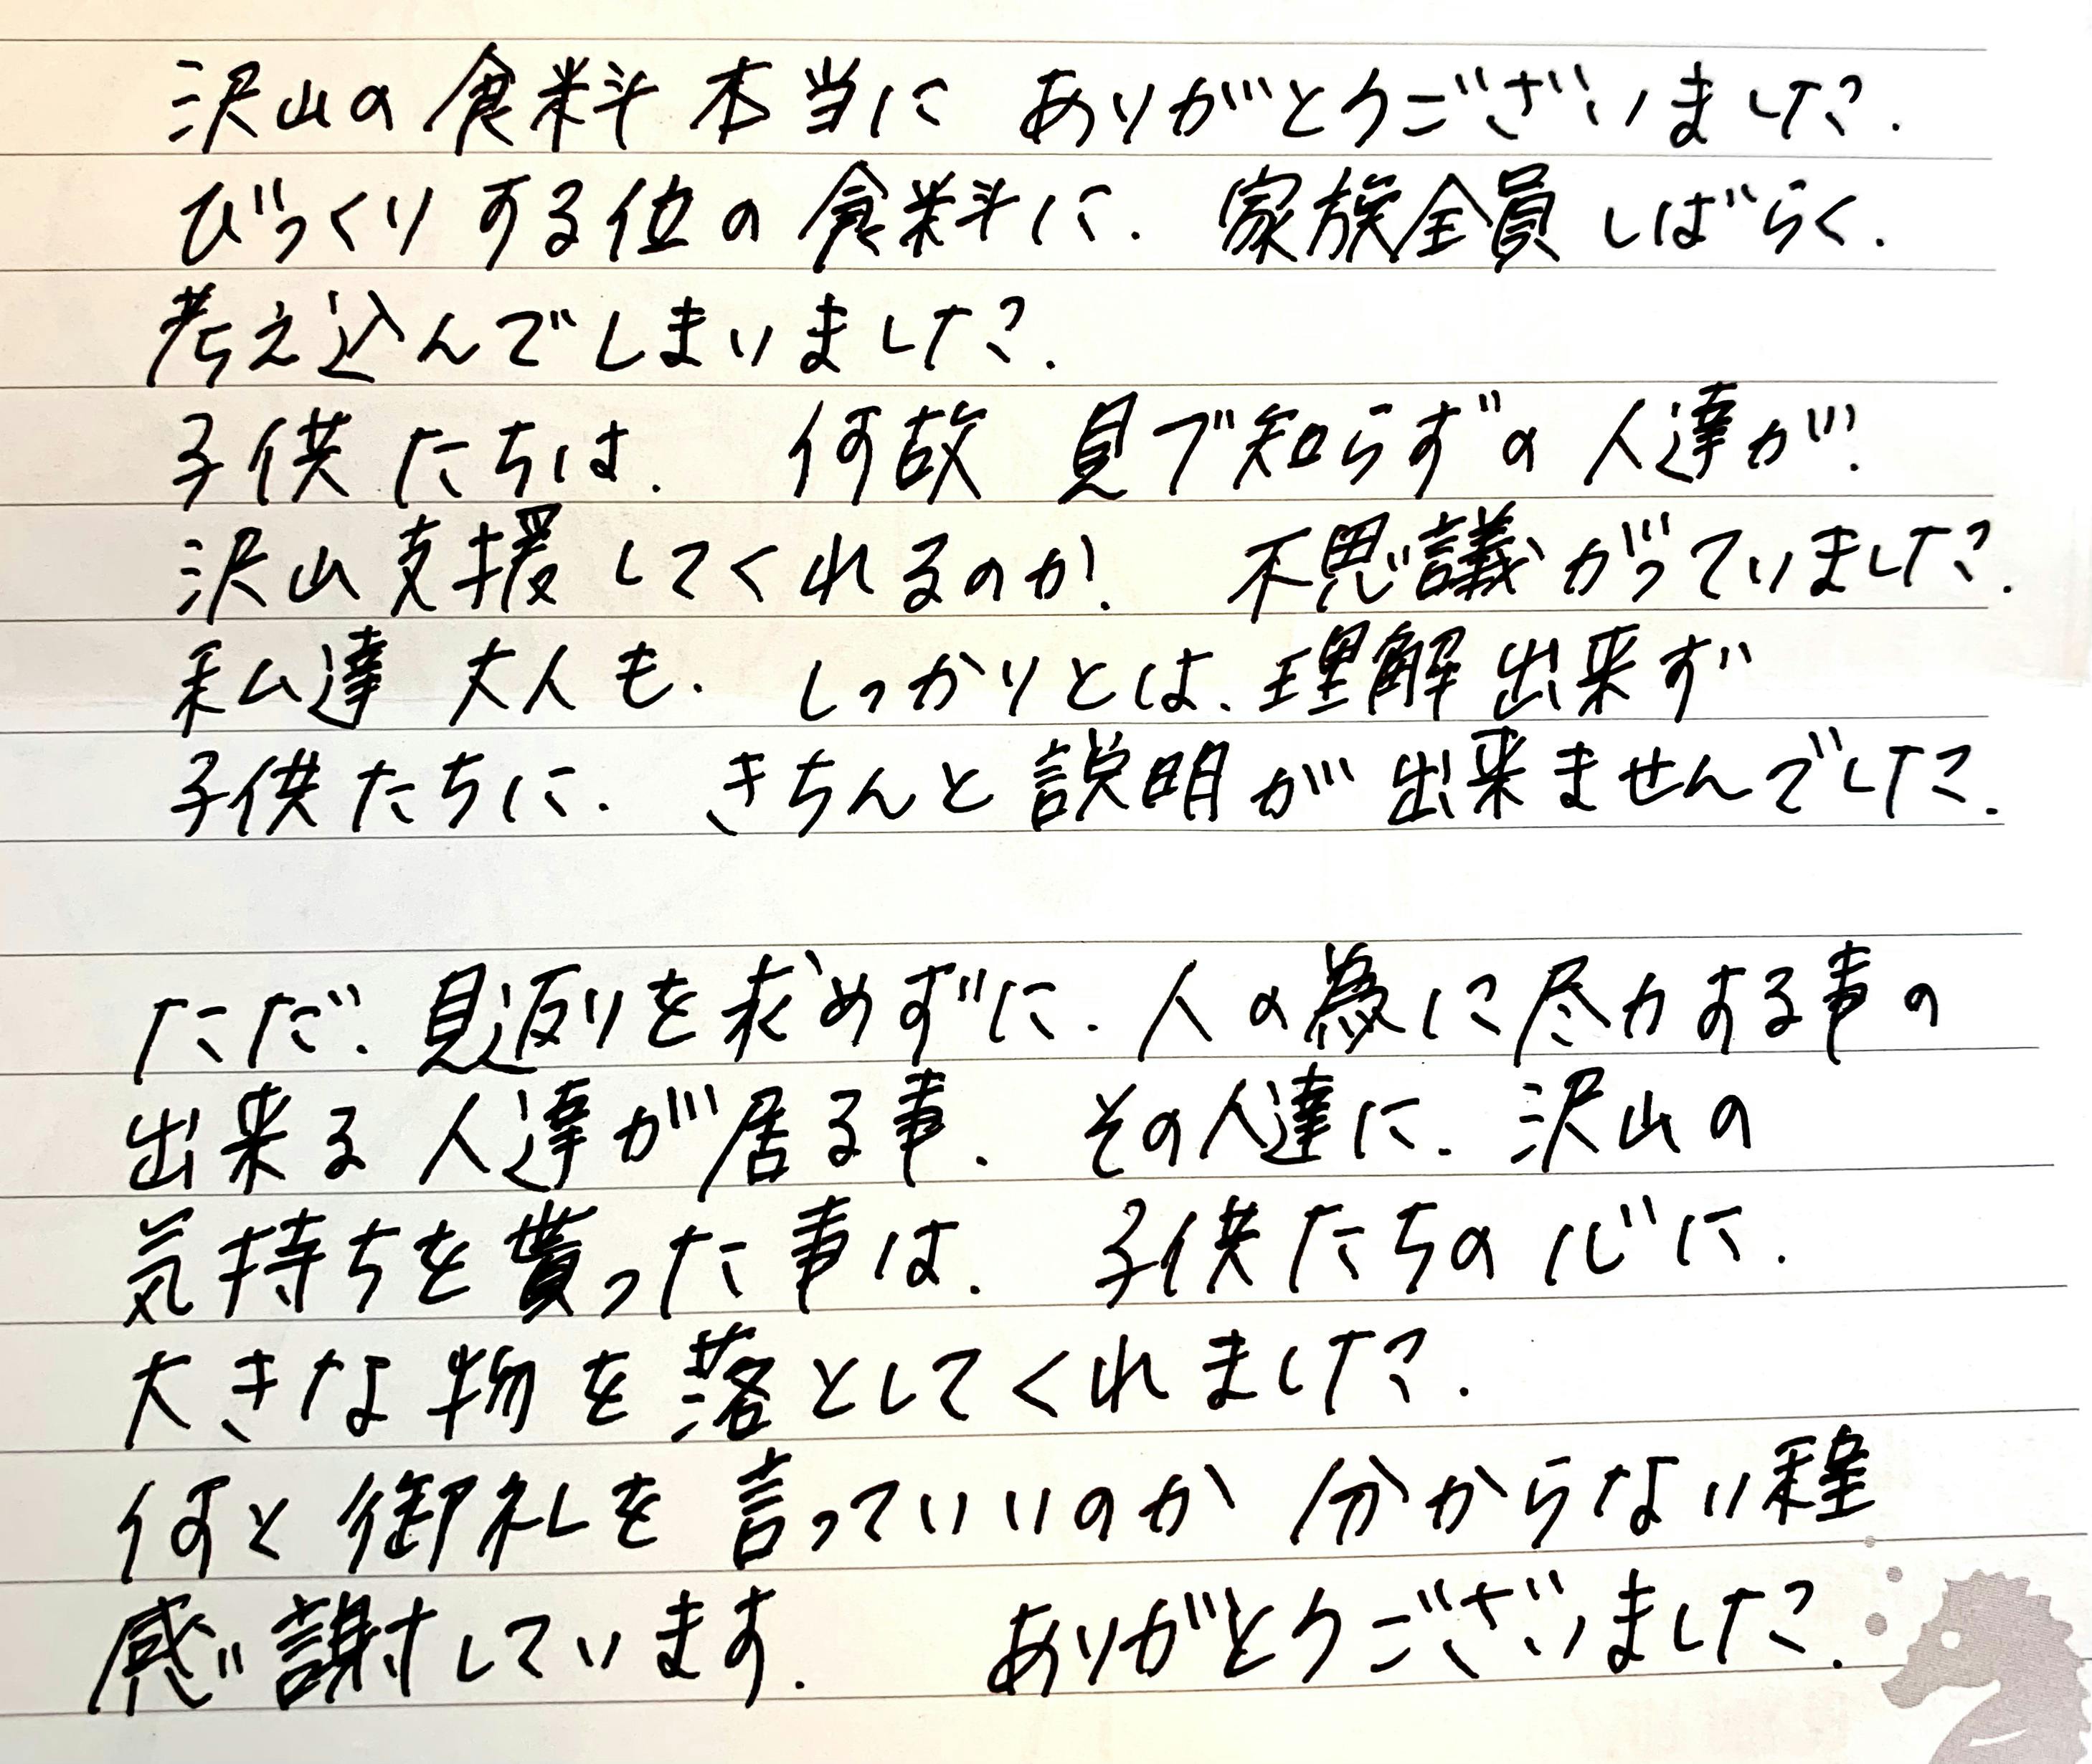 沢山の食料本当に ありがとうございました.
びっくりする位の食料に. 家族全員しばらく.
考え込んでしまいました.
子供たちは. 何故 見ず知らずの人達が.
沢山支援してくれるのか. 不思議がっていました.
私達大人も. しっかりとは、理解出来ず
子供たちに. きちんと説明が出来ませんでした.
ただ、見返りを求めずに. 人の為に尽力する事の
出来る人達が居る事、 その人達に. 沢山の
気持ちを貰った事は. 子供たちの心に.
大きな物を落としてくれました.
何と御礼を言っていいのか分からない程
感謝しています. ありがとうございました.